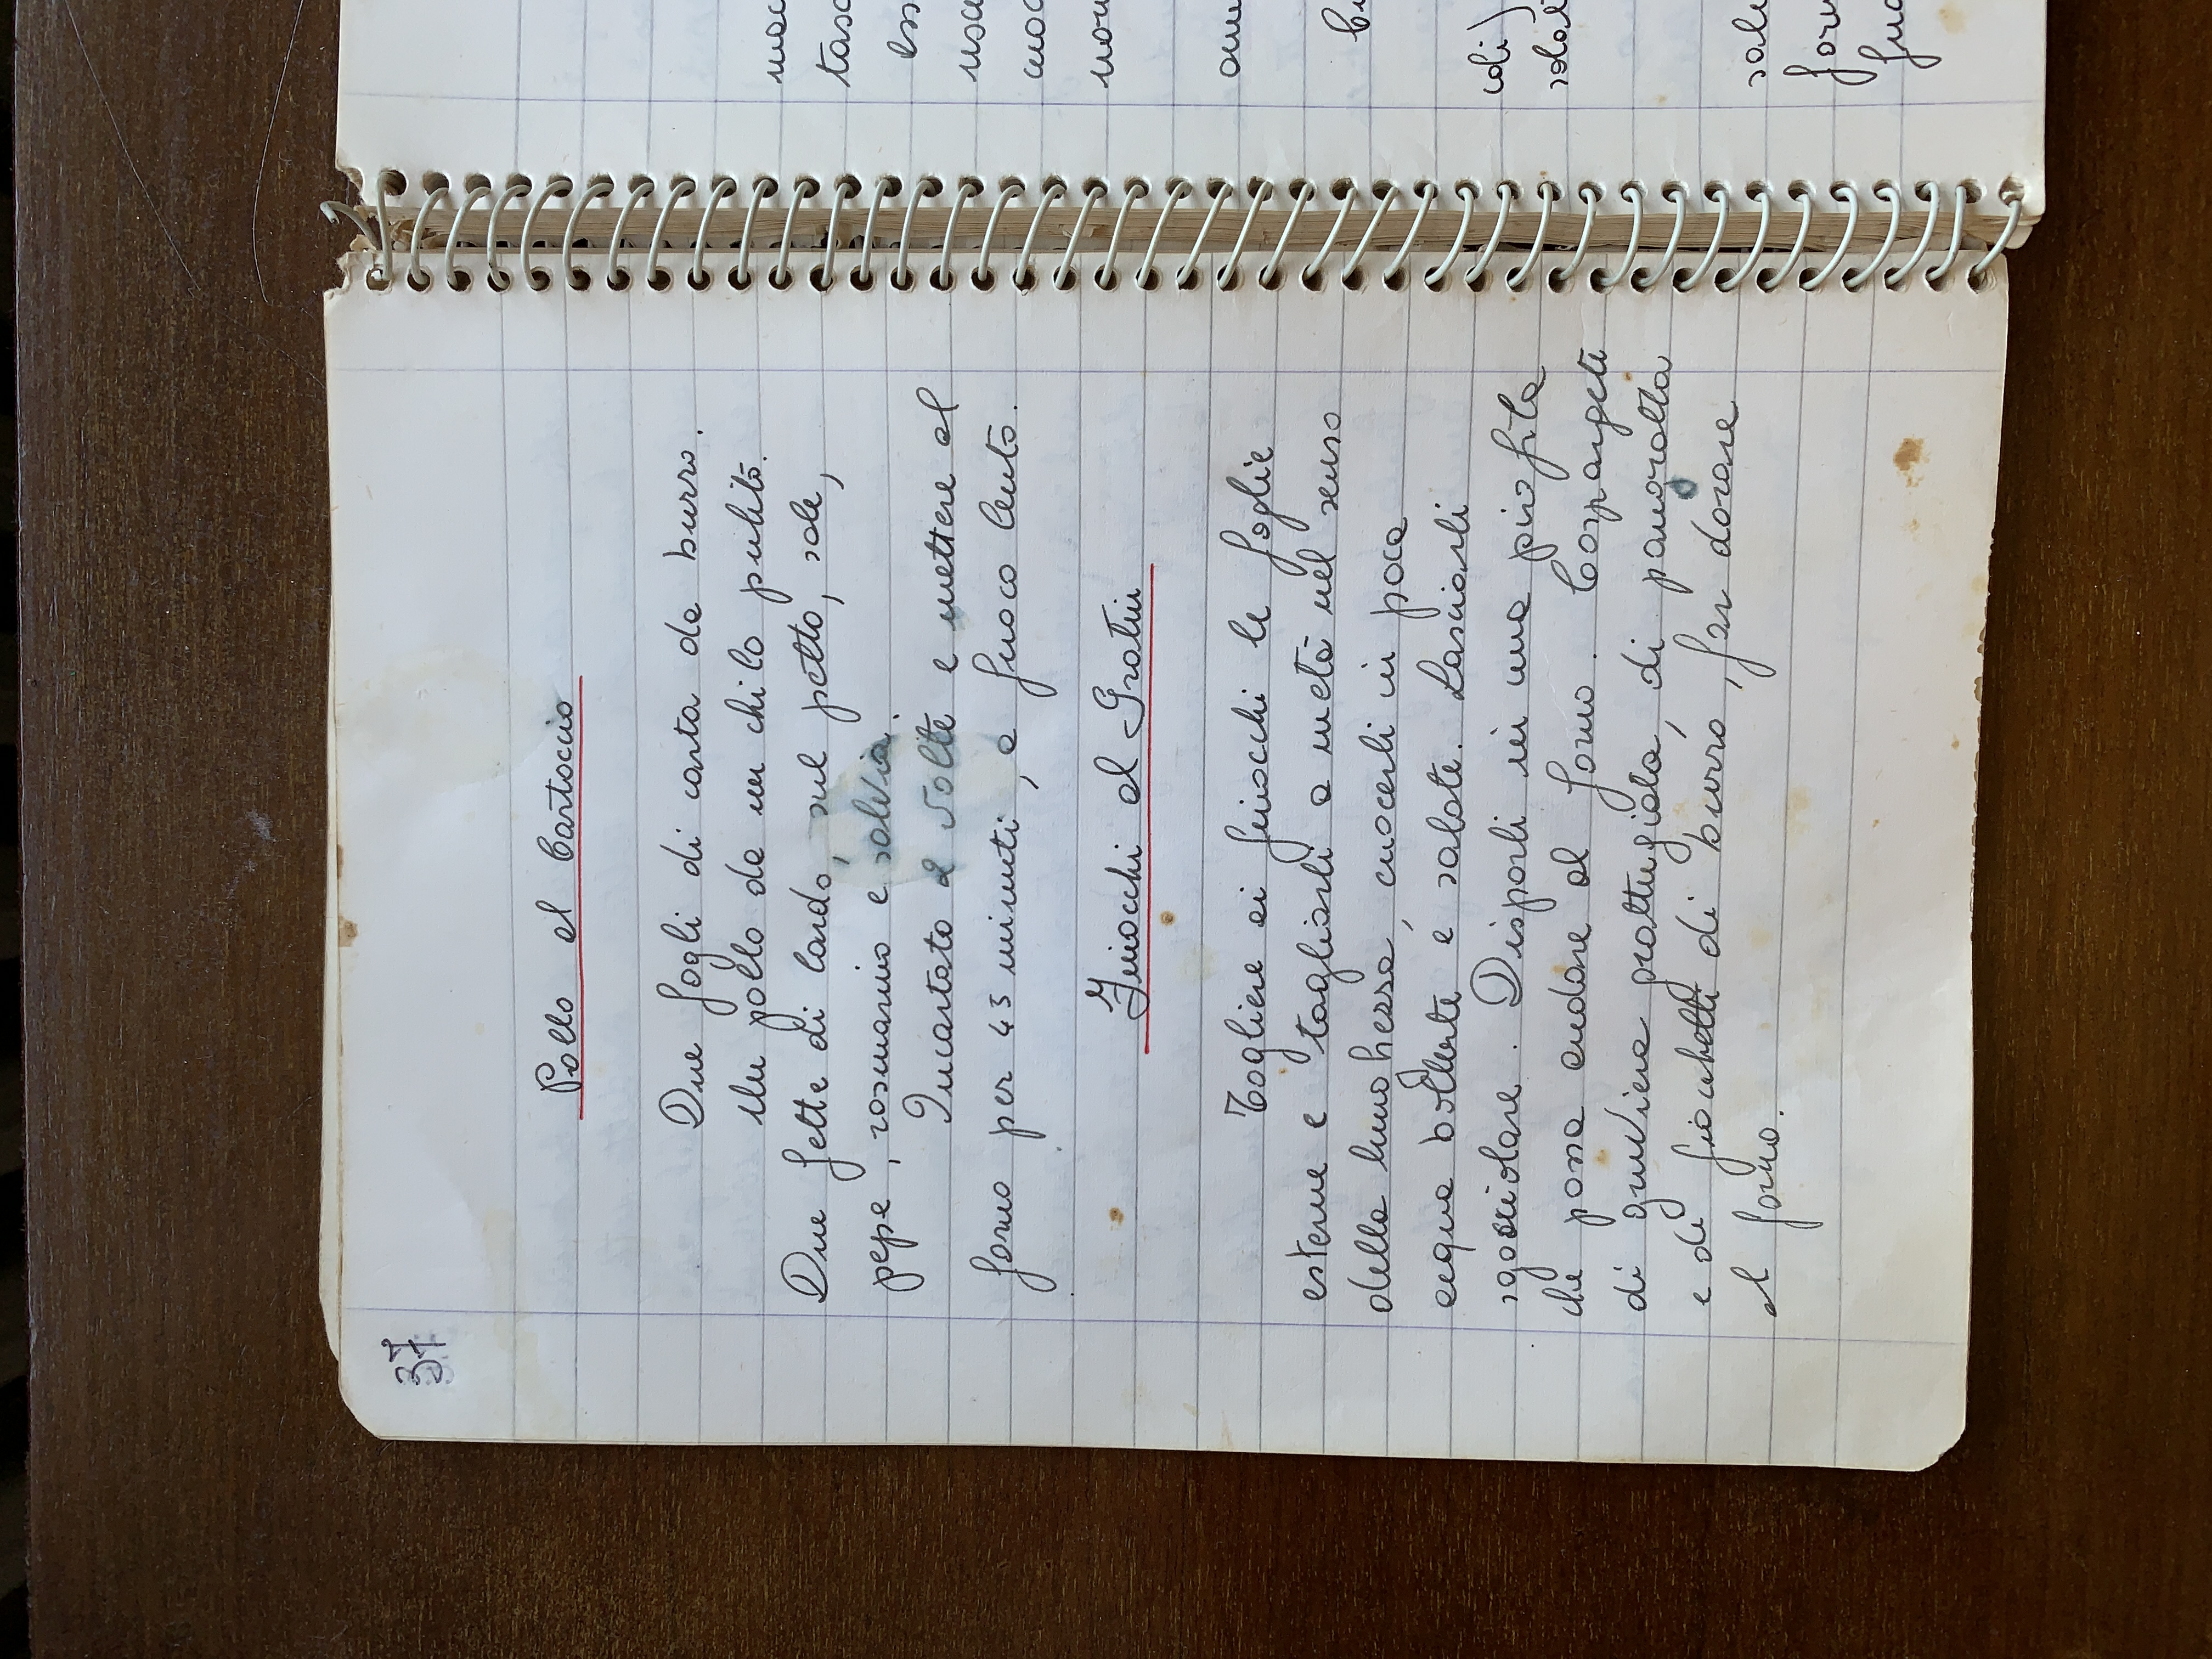 37
Pollo al Cartoccio
Due fogli di carta da burro.
Un pollo da un chilo pulito.
Due fette di lardo, sul petto, sale,
pepe, rosmarino e salvia.
Incartato 2 volte e mettere al
forno per 45 minuti, a fuoco lento.
Finocchi al Gratin
Togliere ai finocchi le foglie
esterne e tagliarli a metà nel senso
della lunghezza, cuocerli in poca
acqua bollente e salata. Lasciarli
sgocciolare. Disporli in una pirofila
che possa andare al forno. Cospargete
di gruviera grattugiata, di pangratta
e di fiocchetti di burro, far dorare
al forno.
tasc
ess
usce
nou
coli)
salat
sale